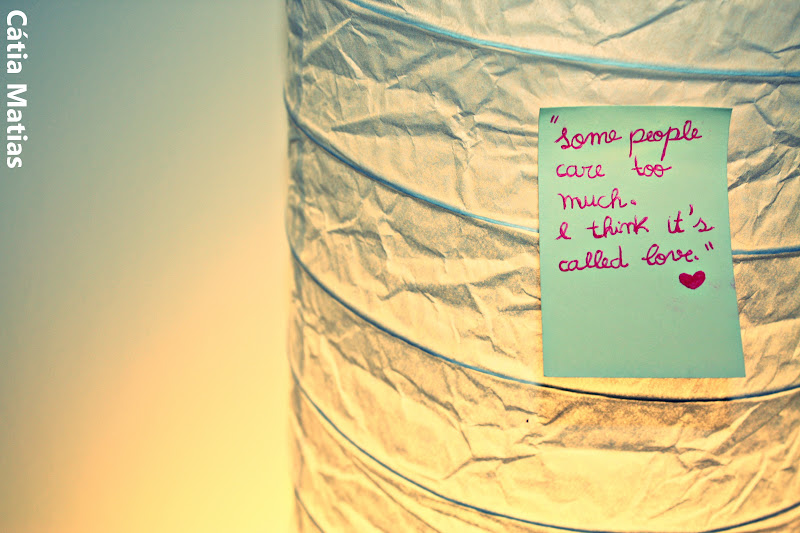 Cátia Matias
"some people
care too
much.
I think it's
called love."